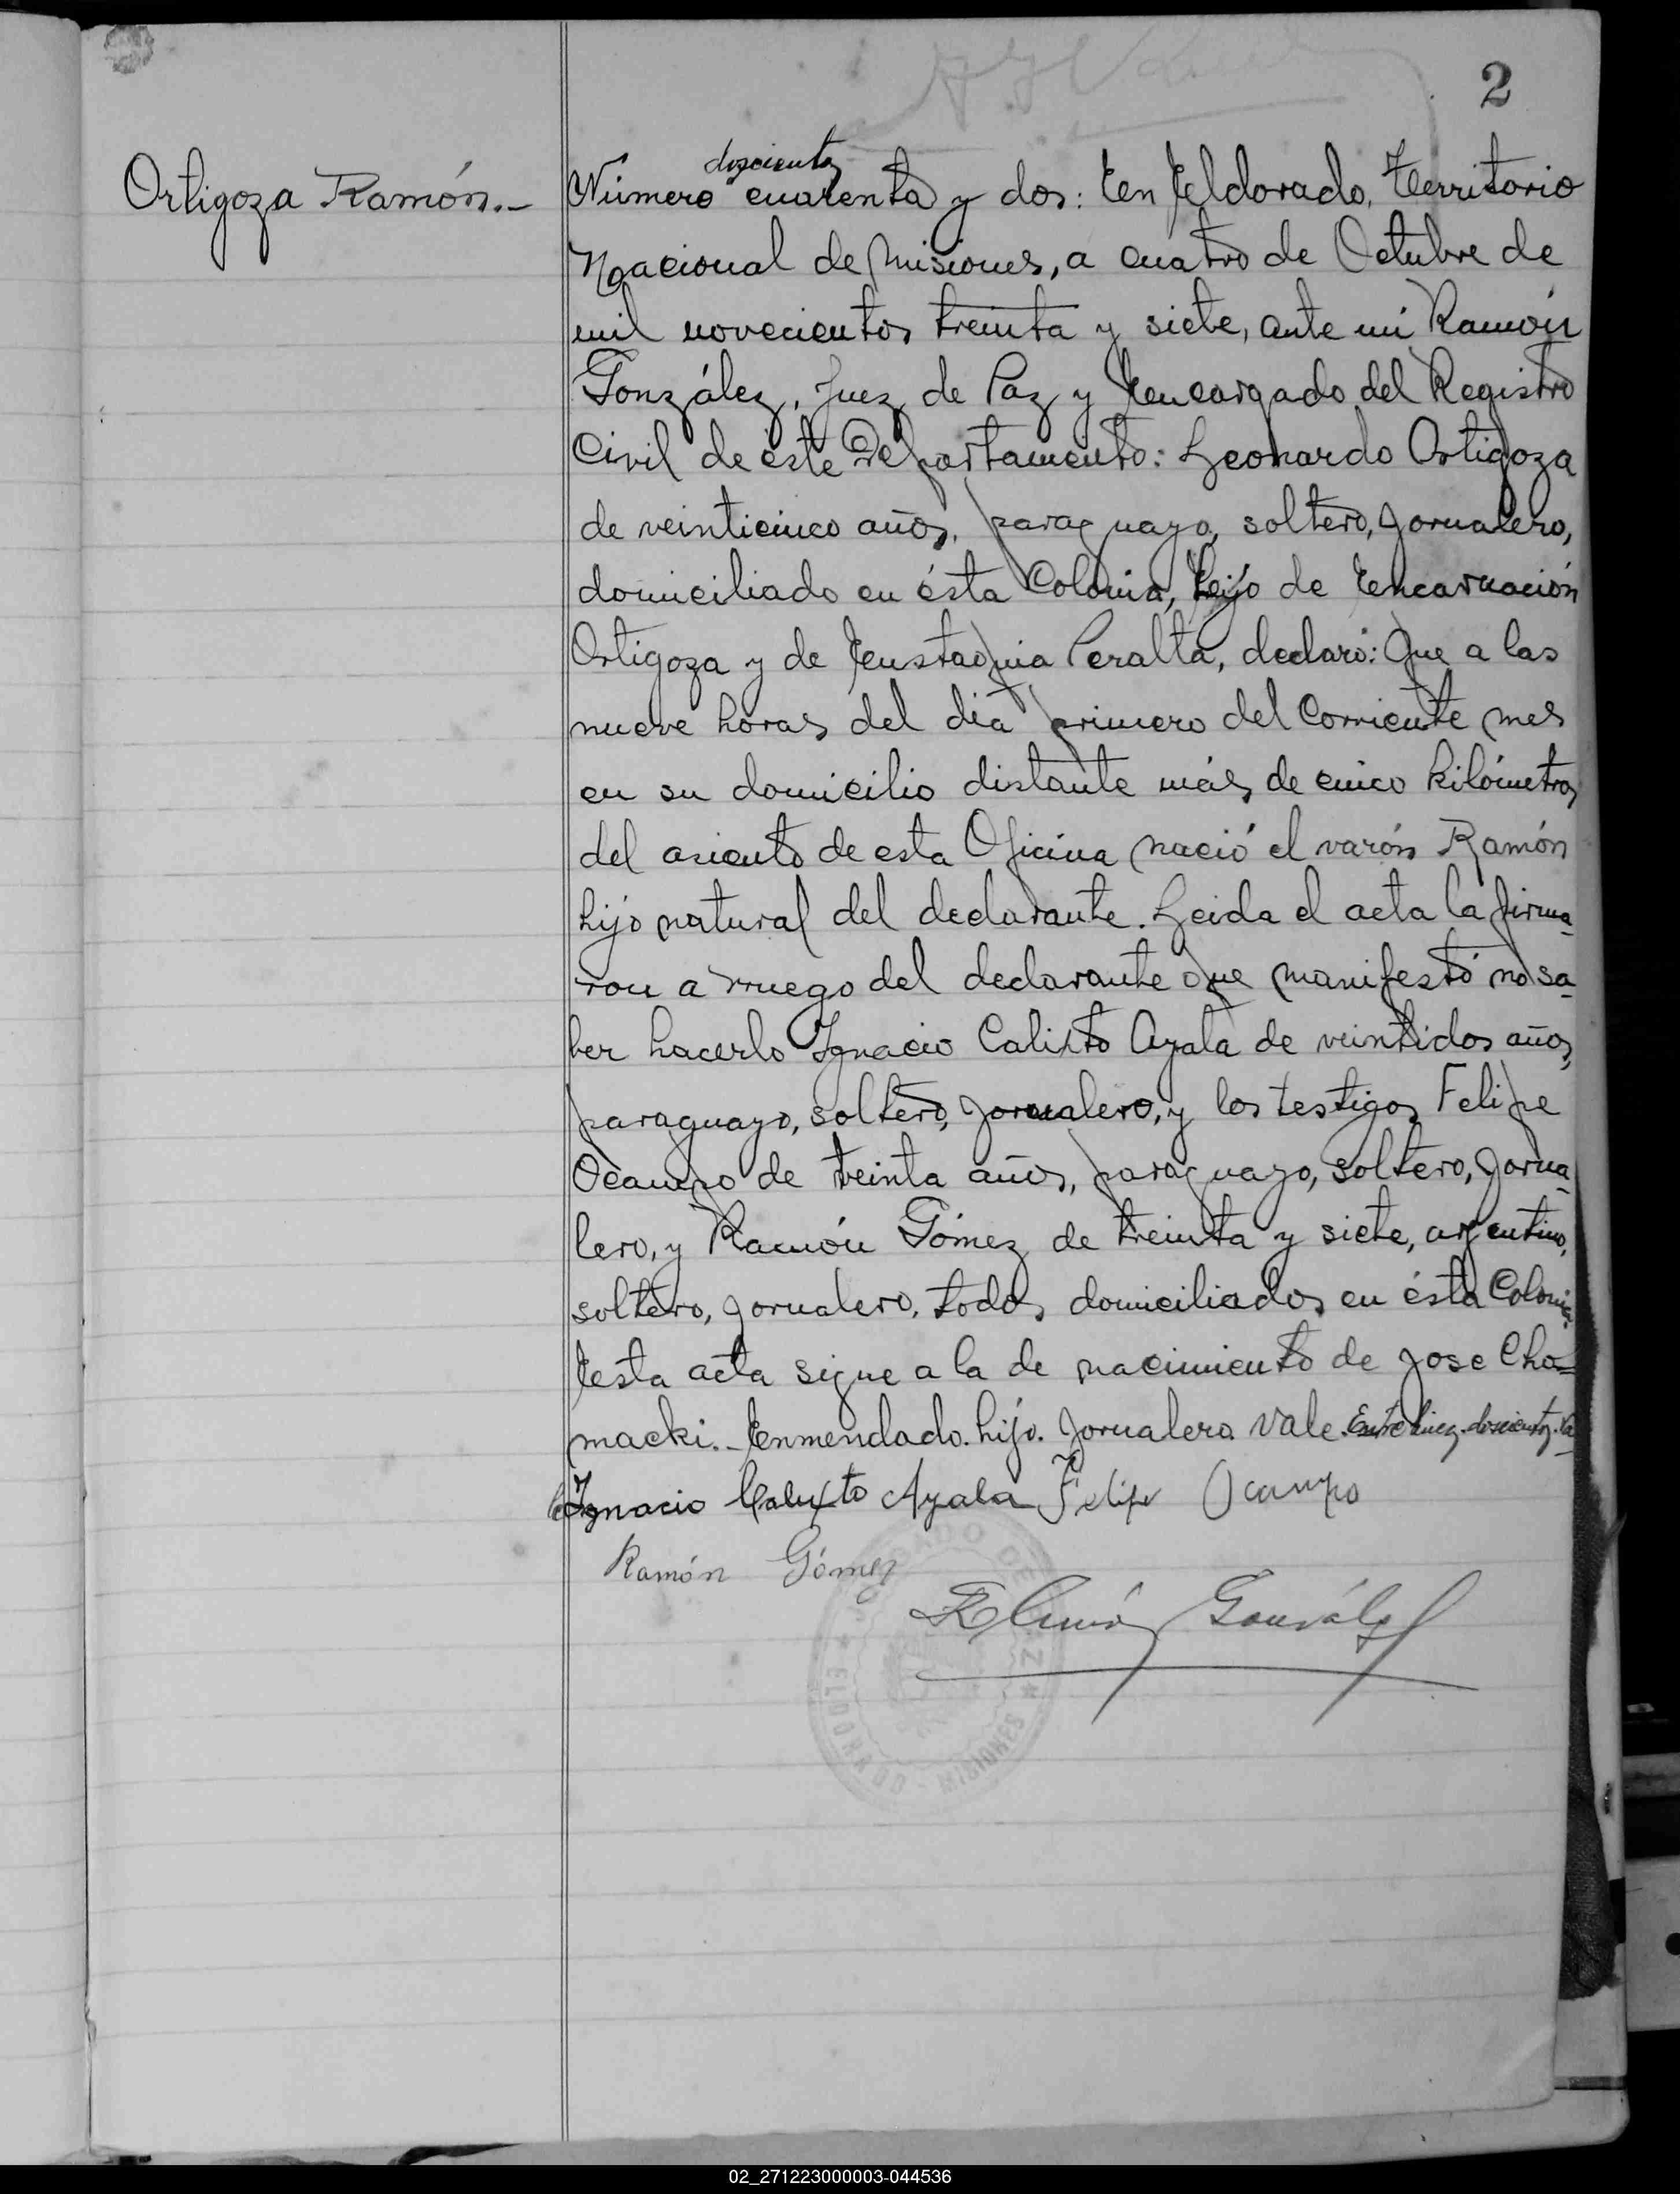 2
Ortigoza Ramón.-
doscientos
Número cuarenta y dos: En Eldorado, Territorio
Nacional de Misiones, a cuatro de Octubre de
mil novecientos treinta y siete, ante mi Ramón
González, Juez de Paz y Encargado del Registro
Civil de éste Departamento: Leonardo Ortigoza
de veinticinco años, paraguayo, soltero, jornalero,
domiciliado en ésta Colonia, hijo de Encarnación
Ortigoza y de Eustaquia Peralta, declaró: Que a las
nueve horas del día primero del corriente mes
en su domicilio distante más de cinco kilómetros
del asiento de esta Oficina nació el varón Ramón
hijo natural del declarante. Leida el acta la firma-
ron a rruego del declarante que manifestó no sa-
ber hacerlo Ignacio Calixto Ayala de veintidos años,
paraguayo, soltero, jornalero, y los testigos Felipe
Ocampo de treinta años, paraguayo, soltero, jorna-
lero, y Ramón Gómez de treinta y siete, argentino,
soltero, jornalero, todos domiciliados en ésta Colonia.
Esta acta sigue a la de nacimiento de Jose Cho-
macki.- Enmendado. hijo. Jornalero. Vale. Entre linea. doscientos. Va-
le
Ignacio Calixto Ayala Felipe Ocampo
Ramón Gómez
Ramón González
ELDORADO - MISIONES
02_271223000003-044536